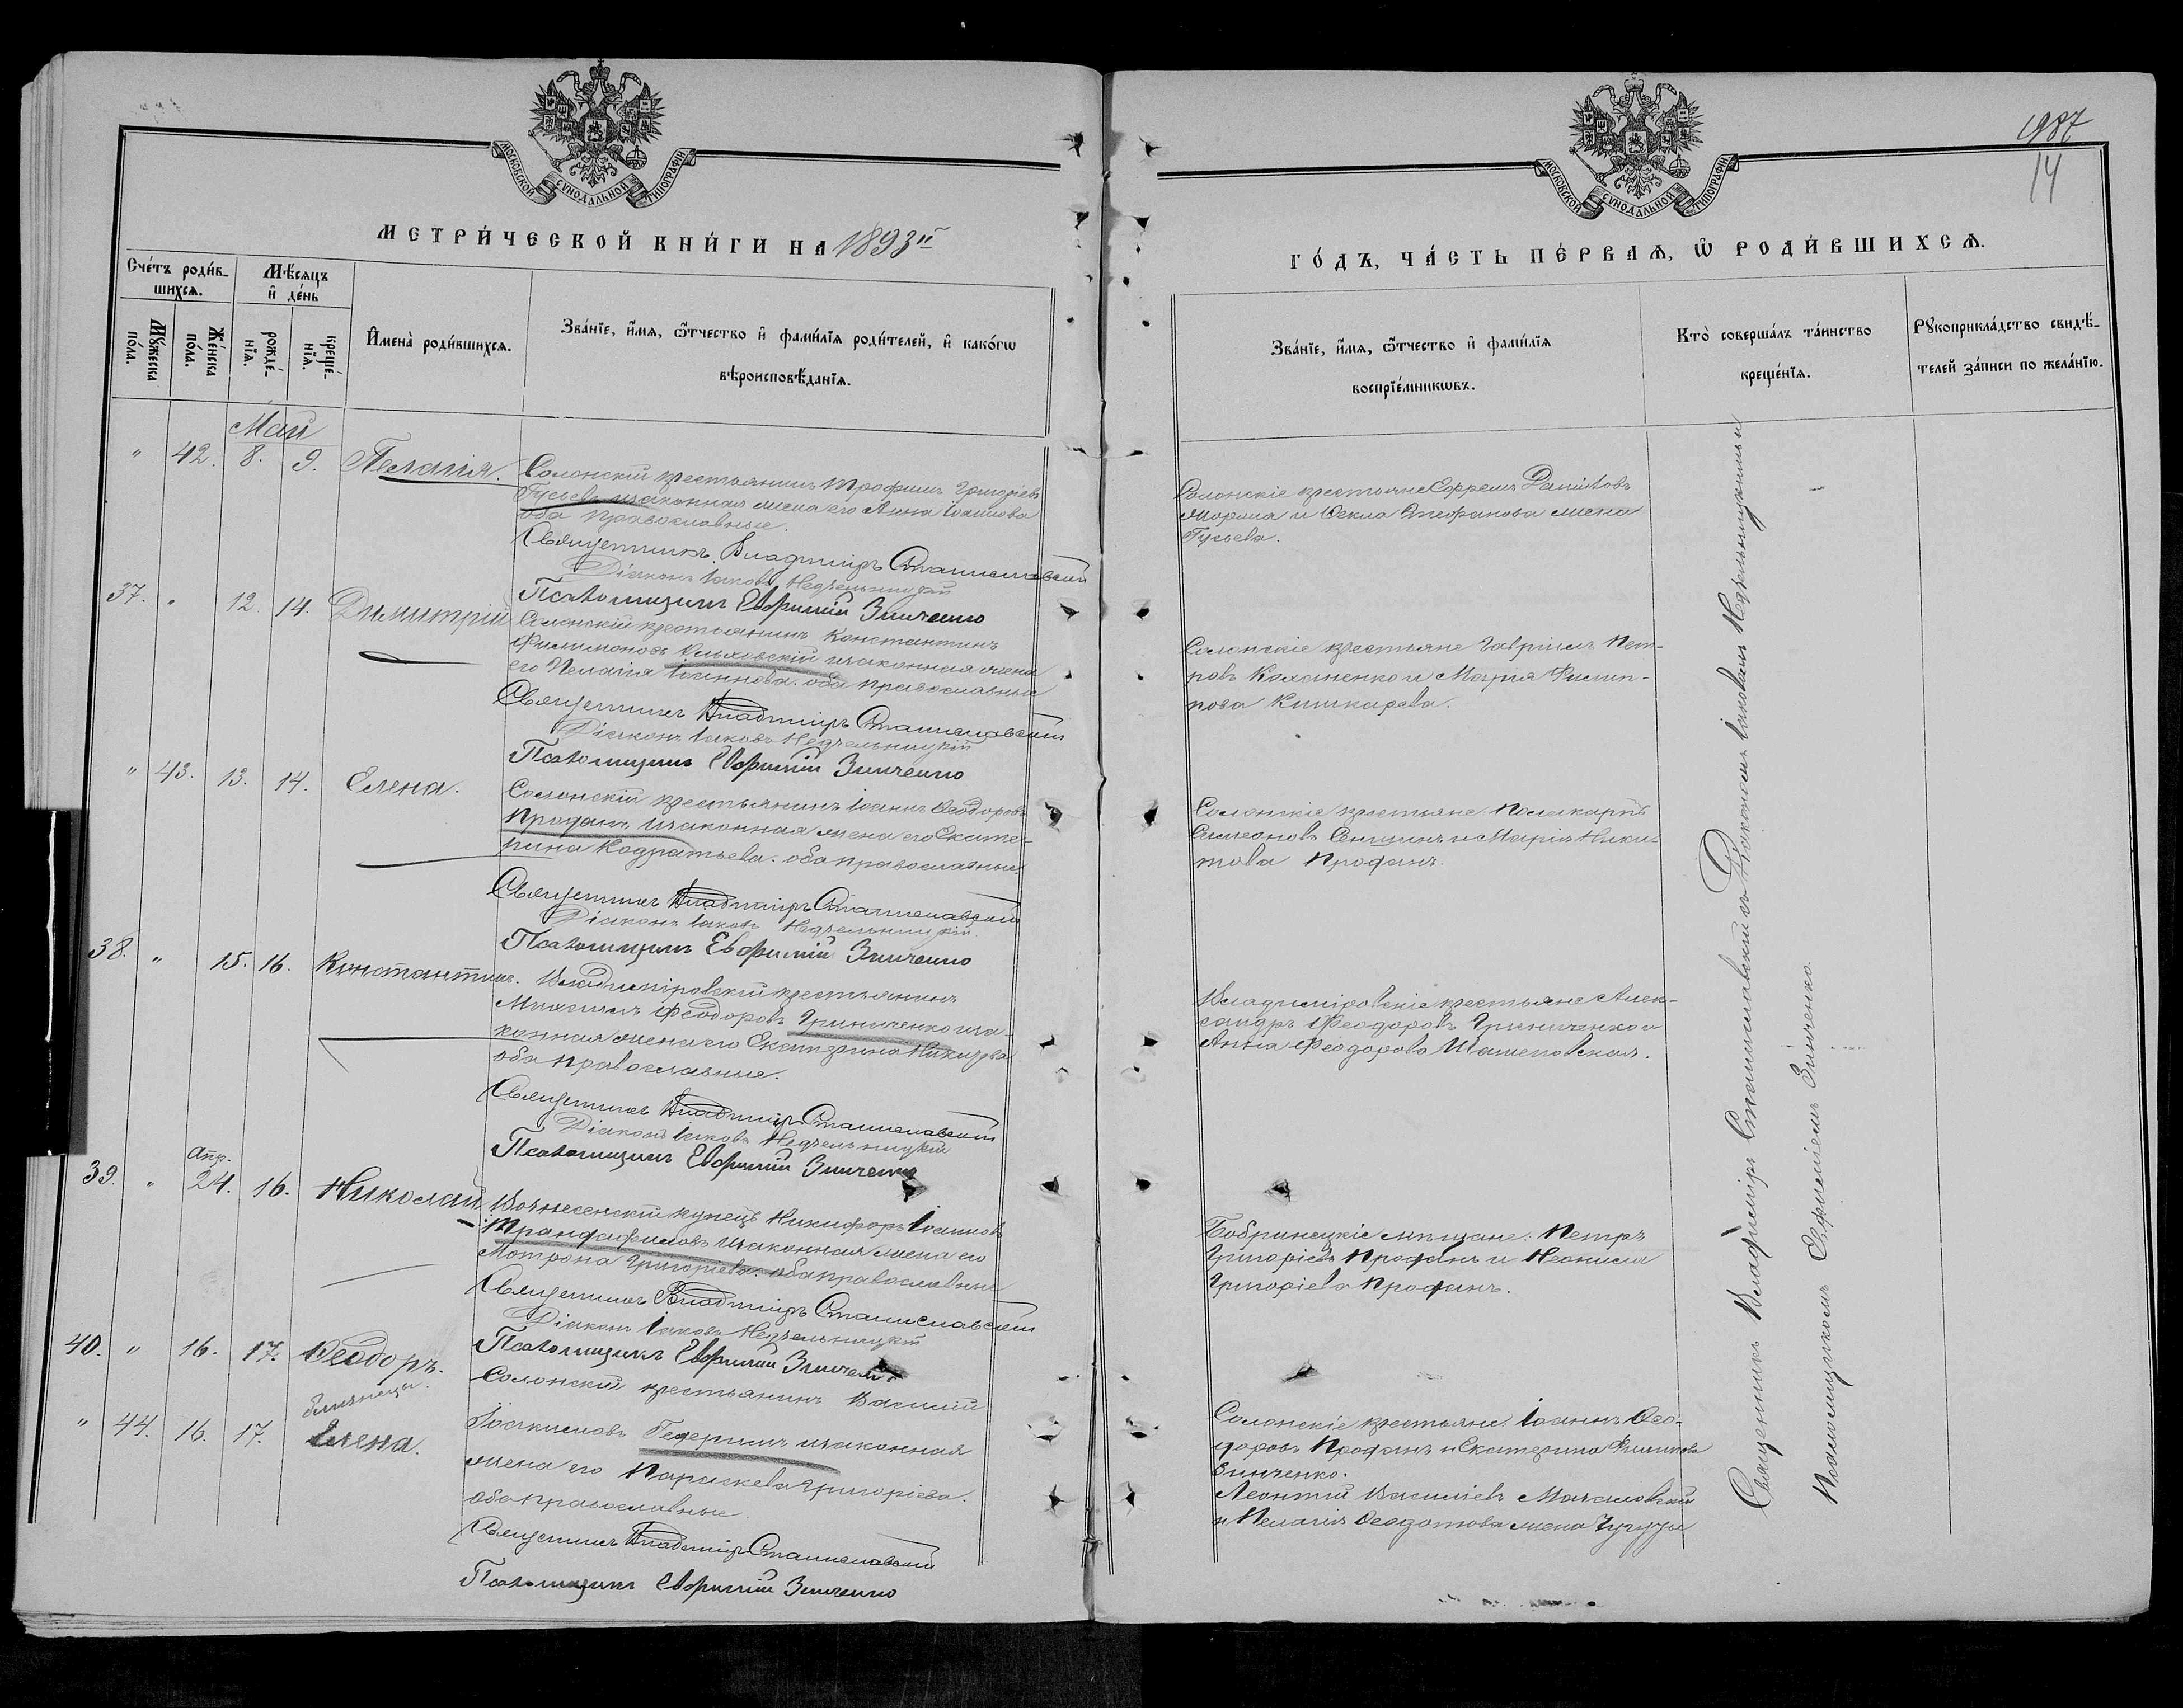 МОСКОВСКОЙ СѴНОДАЛЬНОЙ ТИПОГРАФІИ
МЕТРИ́ЧЕСКОЙ КНИ́ГИ НА 1893й
Сче́тъ роди́в-
шихсѧ.
Мѣ́сѧцъ
и҆ де́нь
Мꙋ́жеска
по́ла.
Же́нска
по́ла.
рожде́-
нїѧ.
креще́-
нїѧ.
И҆мена̀ роди́вшихсѧ.
Зва́нїе, и҆́мѧ, ѻ҆́тчество и҆ фами́лїѧ роди́телей, и҆ како́гѡ
вѣроисповѣ́данїѧ.
Май
" 42. 8. 9. Пелагія.
Солонскій крестьянинъ Трофимъ Григоріевъ
Гусьевъ изаконная жена его Анна Іоаннова
оба православные.
Священникъ Владиміръ Станиславскій
Діаконъ Іаковъ Недзельницкій
Псаломщикъ Евфимій Зинченко
37. " 12. 14. Димитрій
Солонскій крестьянинъ Константинъ
Филимоновъ изаконная жена
его Пелагія Іоаннова. оба православные
Священникъ Владиміръ Станиславскій
Діаконъ Іаковъ Недзельницкій
Псаломщикъ Евфимій Зинченко
" 43. 13. 14. Елена.
Солонскій крестьянинъ Іоаннъ Ѳеодоровъ
Профанъ изаконная жена его Екате-
рина Кодратьева. оба православные.
Священникъ Владиміръ Станиславскій
Діаконъ Іаковъ Недзельницкій
Псаломщикъ Евфимій Зинченко
38. " 15. 16. Константинъ.
Владиміровскій крестьянинъ
Михаилъ Феодоровъ Гриниченко иза-
конная жена его Екатерина
оба православные.
Священникъ Владиміръ Станиславскій
Діаконъ Іаковъ Недзельницкій
Псаломщикъ Евфимій Зинченко
Апр.
39. " 24. 16. Николай
Вознесенскій купецъ Никифоръ Іоанновъ
Трандафиловъ изаконная жена его
Мотрона Григоріева. оба православные
Священникъ Владиміръ Станиславскій
Діаконъ Іаковъ Недзельницкій
Псаломщикъ Евфимій Зинченко
40. " 16. 17. Ѳеодоръ.
близнецы.
" 44. 16. 17. Елена.
Солонскій крестьянинъ Василій
Іоакимовъ изаконная
жена его Параскева Григоріева.
оба православные
Священникъ Владиміръ Станиславскій
Псаломщикъ Евфимій Зинченко
1987
14
МОСКОВСКОЙ СѴНОДАЛЬНОЙ ТИПОГРАФІИ
ГО́ДЪ, ЧА́СТЬ ПЕ́РВАѦ, Ѡ҆ РОДИ́ВШИХСѦ.
Зва́нїе, и҆́мѧ, ѻ҆́тчество и҆ фами́лїѧ
воспрїе́мникѡвъ.
Кто̀ соверша́лъ та́инство
креще́нїѧ.
Рꙋкоприкла́дство свидѣ́-
телей за́писи по жела́нїю.
Солонскіе крестьяне Ефремъ Даниловъ
и Ѳекла Стефанова жена
Гусьева.
Солонскіе крестьяне Гавріилъ Пет-
ровъ Коханенко и Марія Филип-
пова Кишкарева.
Солонскіе крестьяне Поликарпъ
Симеоновъ и Марія Ники-
това Профанъ.
Владиміровскіе крестьяне Алек-
сандръ Феодоровъ Гриниченко и
Анна Феодорова
Бобринецкіе мѣщане: Петръ
Григоріевъ Профанъ и Неонила
Григоріева Профанъ.
Солонскіе крестьяне: Іоаннъ Ѳео-
доровъ Профанъ и Екатерина Филипова
Зинченко.
Леонтій Василіевъ
и Пелагія Ѳеодотова жена
Священникъ Владиміръ Станиславскій съ Діакономъ Іаковомъ Недзельницкимъ и
Псаломщикомъ Евфиміемъ Зинченко.